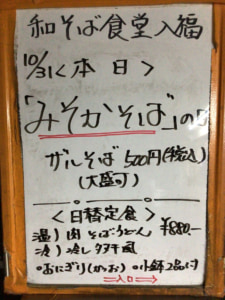 和そば食堂 入福
10/31<本日>
「みそかそば」の日
ザルそば 500円(税込)
(大盛可)
<日替定食>
温) 肉そばうどん ¥880-
冷) 冷し
・おにぎり(かつお) ・小鉢2品付
入口